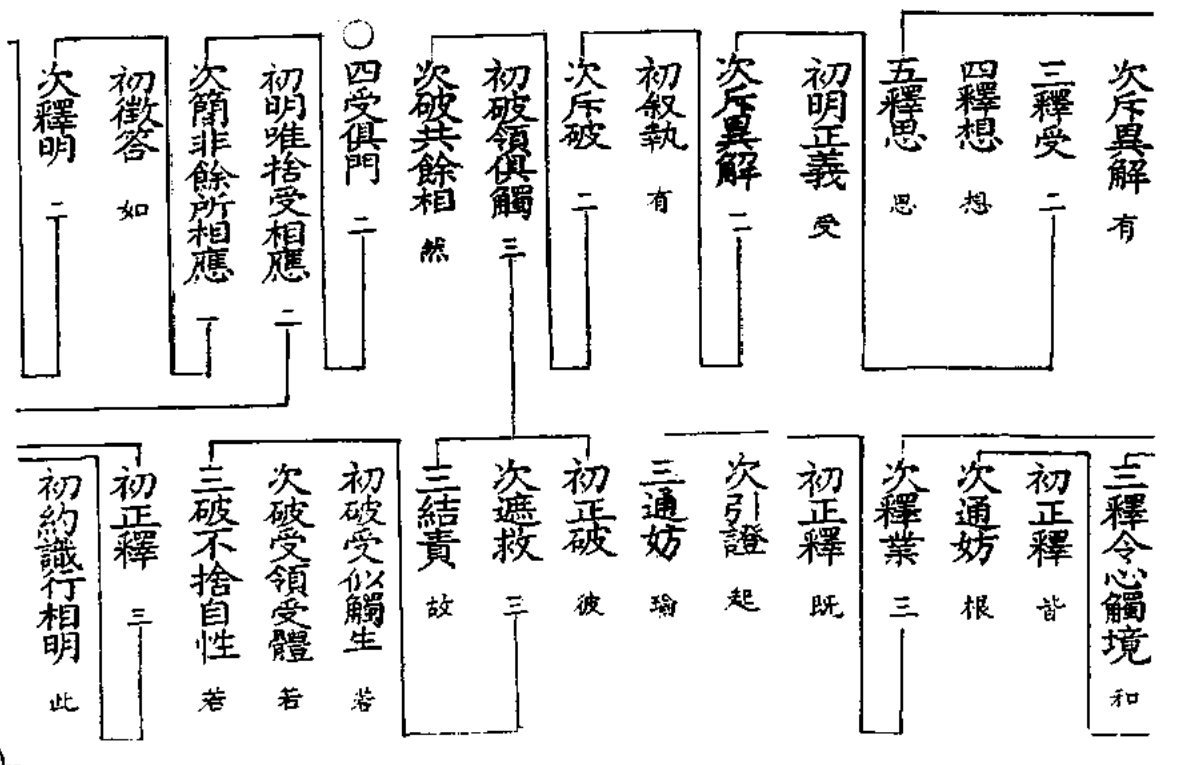 次斥異解 有
三釋受 二
四釋想 想
五釋思 思
初明正義 受
次斥異解 二
初敘執 有
次斥破 二
初破領俱觸 三
次破共餘相 然
○四受俱門 二
初明唯捨受相應 二
次簡非餘所相應 一
初徵答 如
次釋明 二
三釋令心觸境 和
初正釋 皆
次通妨 根
次釋業 三
初正釋 既
次引證 起
三通妨 瑜
初正破 彼
次遮救 三
三結責 故
初破受似觸生 若
次破受領受體 若
三破不捨自性 若
初正釋 三
初約識行相明 此